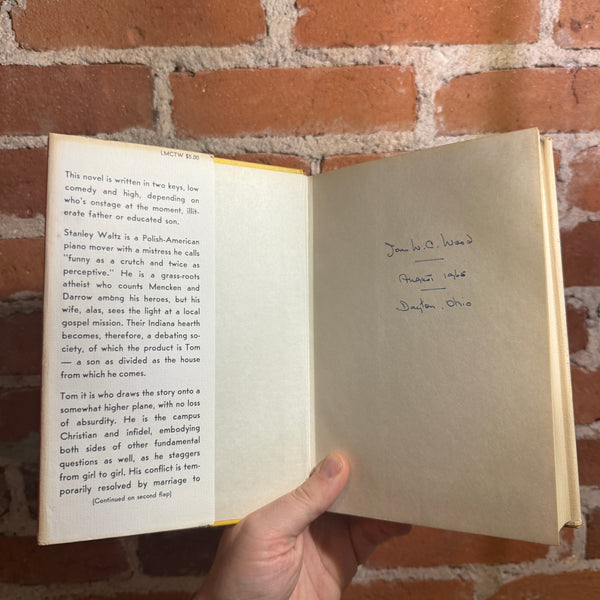 LMCTW $5.00
This novel is written in two keys, low
comedy and high, depending on
who's onstage at the moment, illit-
erate father or educated son.
Stanley Waltz is a Polish-American
piano mover with a mistress he calls
"funny as a crutch and twice as
perceptive." He is a grass-roots
atheist who counts Mencken and
Darrow among his heroes, but his
wife, alas, sees the light at a local
gospel mission. Their Indiana hearth
becomes, therefore, a debating so-
ciety, of which the product is Tom
— a son as divided as the house
from which he comes.
Tom it is who draws the story onto a
somewhat higher plane, with no loss
of absurdity. He is the campus
Christian and infidel, embodying
both sides of other fundamental
questions as well, as he staggers
from girl to girl. His conflict is tem-
porarily resolved by marriage to
(Continued on second flap)
W. C. Wood
August
Dayton, Ohio